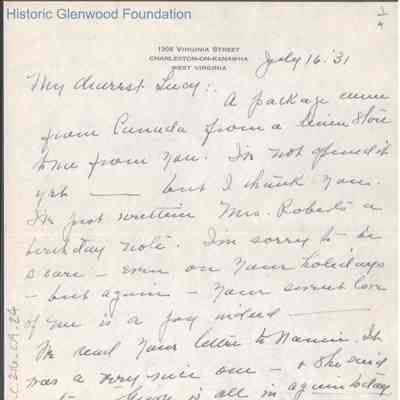 Historic Glenwood Foundation
1/4
1306 VIRGINIA STREET
CHARLESTON-ON-KANAWHA
WEST VIRGINIA
July 16 '31
My dearest Lucy:
A package came
from Canada from a linen store
to me from you. I've not opened it
yet — but I thank you.
I've just written Mrs. Roberts a
birthday note. I'm sorry to be
— even on your holidays
— but again — your sweet love
of me is a joy indeed —
I've read your letter to Nannie. It
was a very nice one — & she said
is all in again today